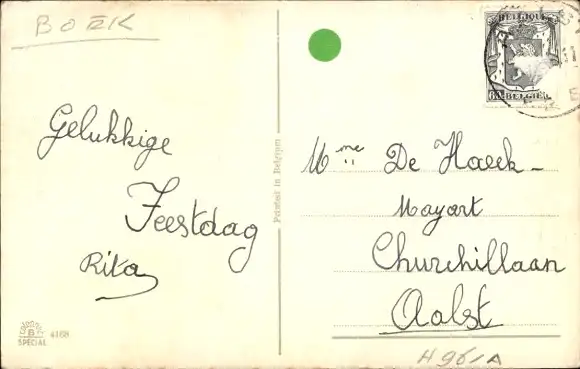 BOEK
Gelukkige
Feestdag
Rita
SPECIAL
4168
Printed in Belgium
BELGIQUE
BELGIË
Mme De Haeck-
Mayart
Churchillaan
Aalst
H961A